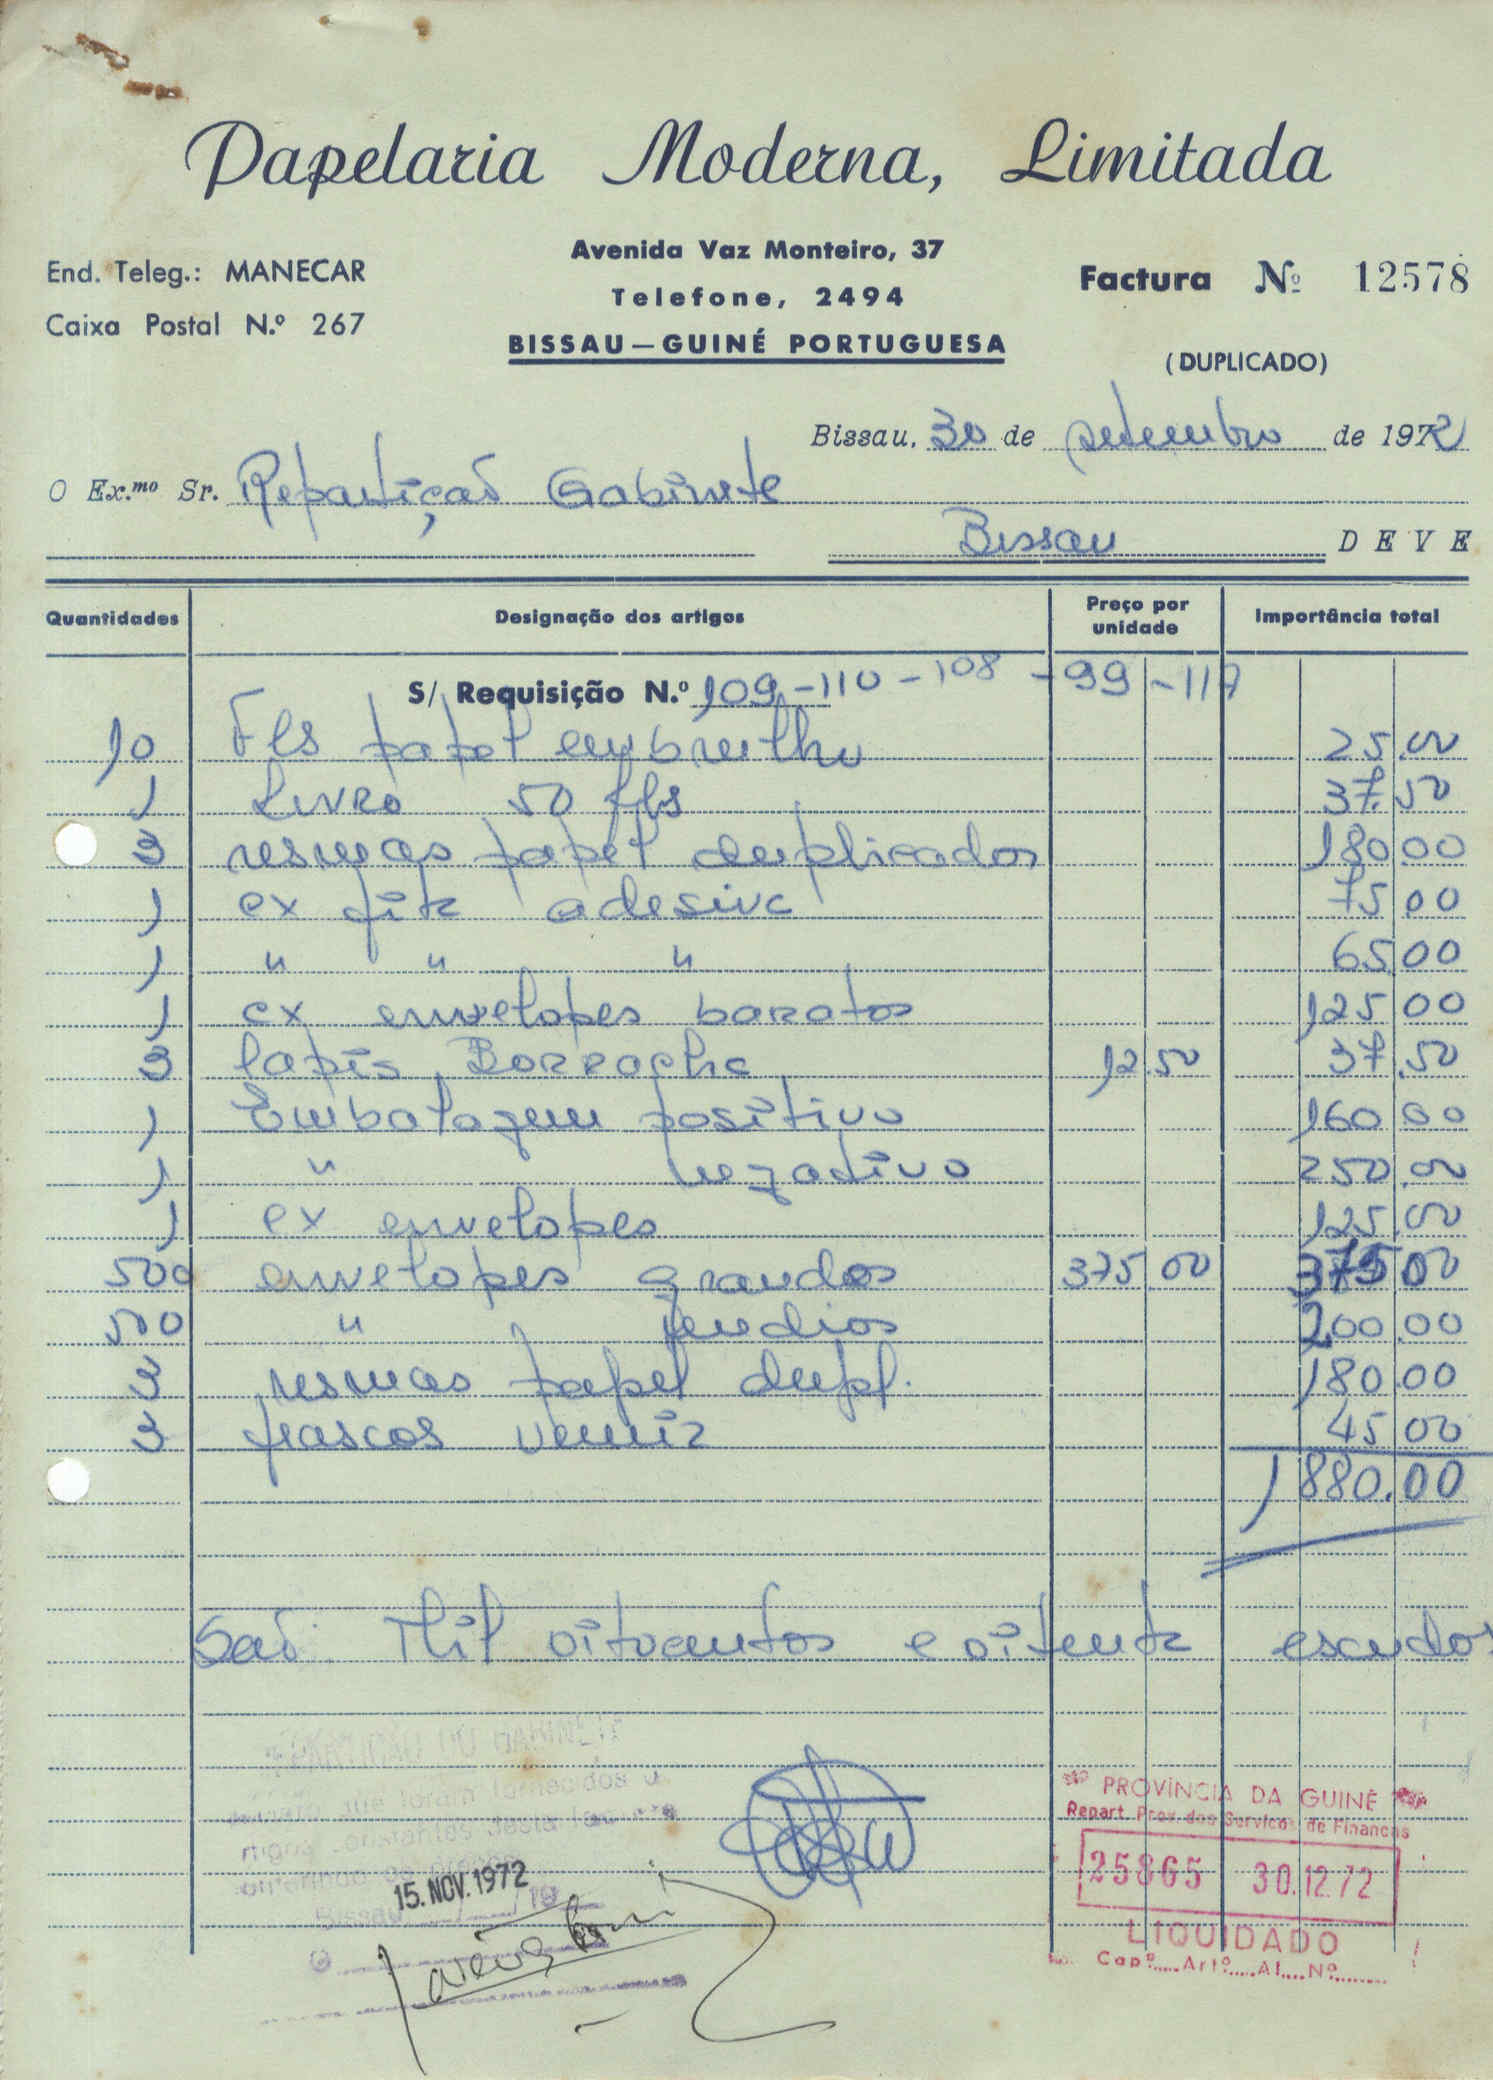 Papelaria Moderna, Limitada
Avenida Vaz Monteiro, 37
End. Teleg.: MANECAR
Telefone, 2494
Factura Nº 12578
Caixa Postal N.º 267
BISSAU — GUINÉ PORTUGUESA
(DUPLICADO)
Bissau, 30 de setembro de 1972
O Ex.mo Sr. Repartição Gabinete
Bissau DEVE
Quantidades Designação dos artigos Preço por unidade Importância total
S/ Requisição N.º 109-110-108-99-117
10 Fls papel embrulho 25.00
1 Livro 50 fls 37.50
3 resmas papel duplicador 180.00
1 cx fita adesiva 75.00
1 " " " 65.00
1 cx envelopes baratos 125.00
3 lapis Borracha 12.50 37.50
1 Embalagem positivo 160.00
1 " negativo 250.00
1 cx envelopes 125.00
500 envelopes grandes 375.00 375.00
500 " 200.00
3 resmas papel dupl. 180.00
3 frascos verniz 45.00
1880.00
São: Mil oitocentos e oitenta escudos
REPARTIÇÃO DO GABINETE
que foram fornecidos
constantes desta factura
15. NOV. 1972
Bissau / / 19
O
PROVÍNCIA DA GUINÉ
Repart. Prov. dos Serviços de Finanças
25865 30.12.72
LIQUIDADO
Capº.....Artº.....Al....Nº........